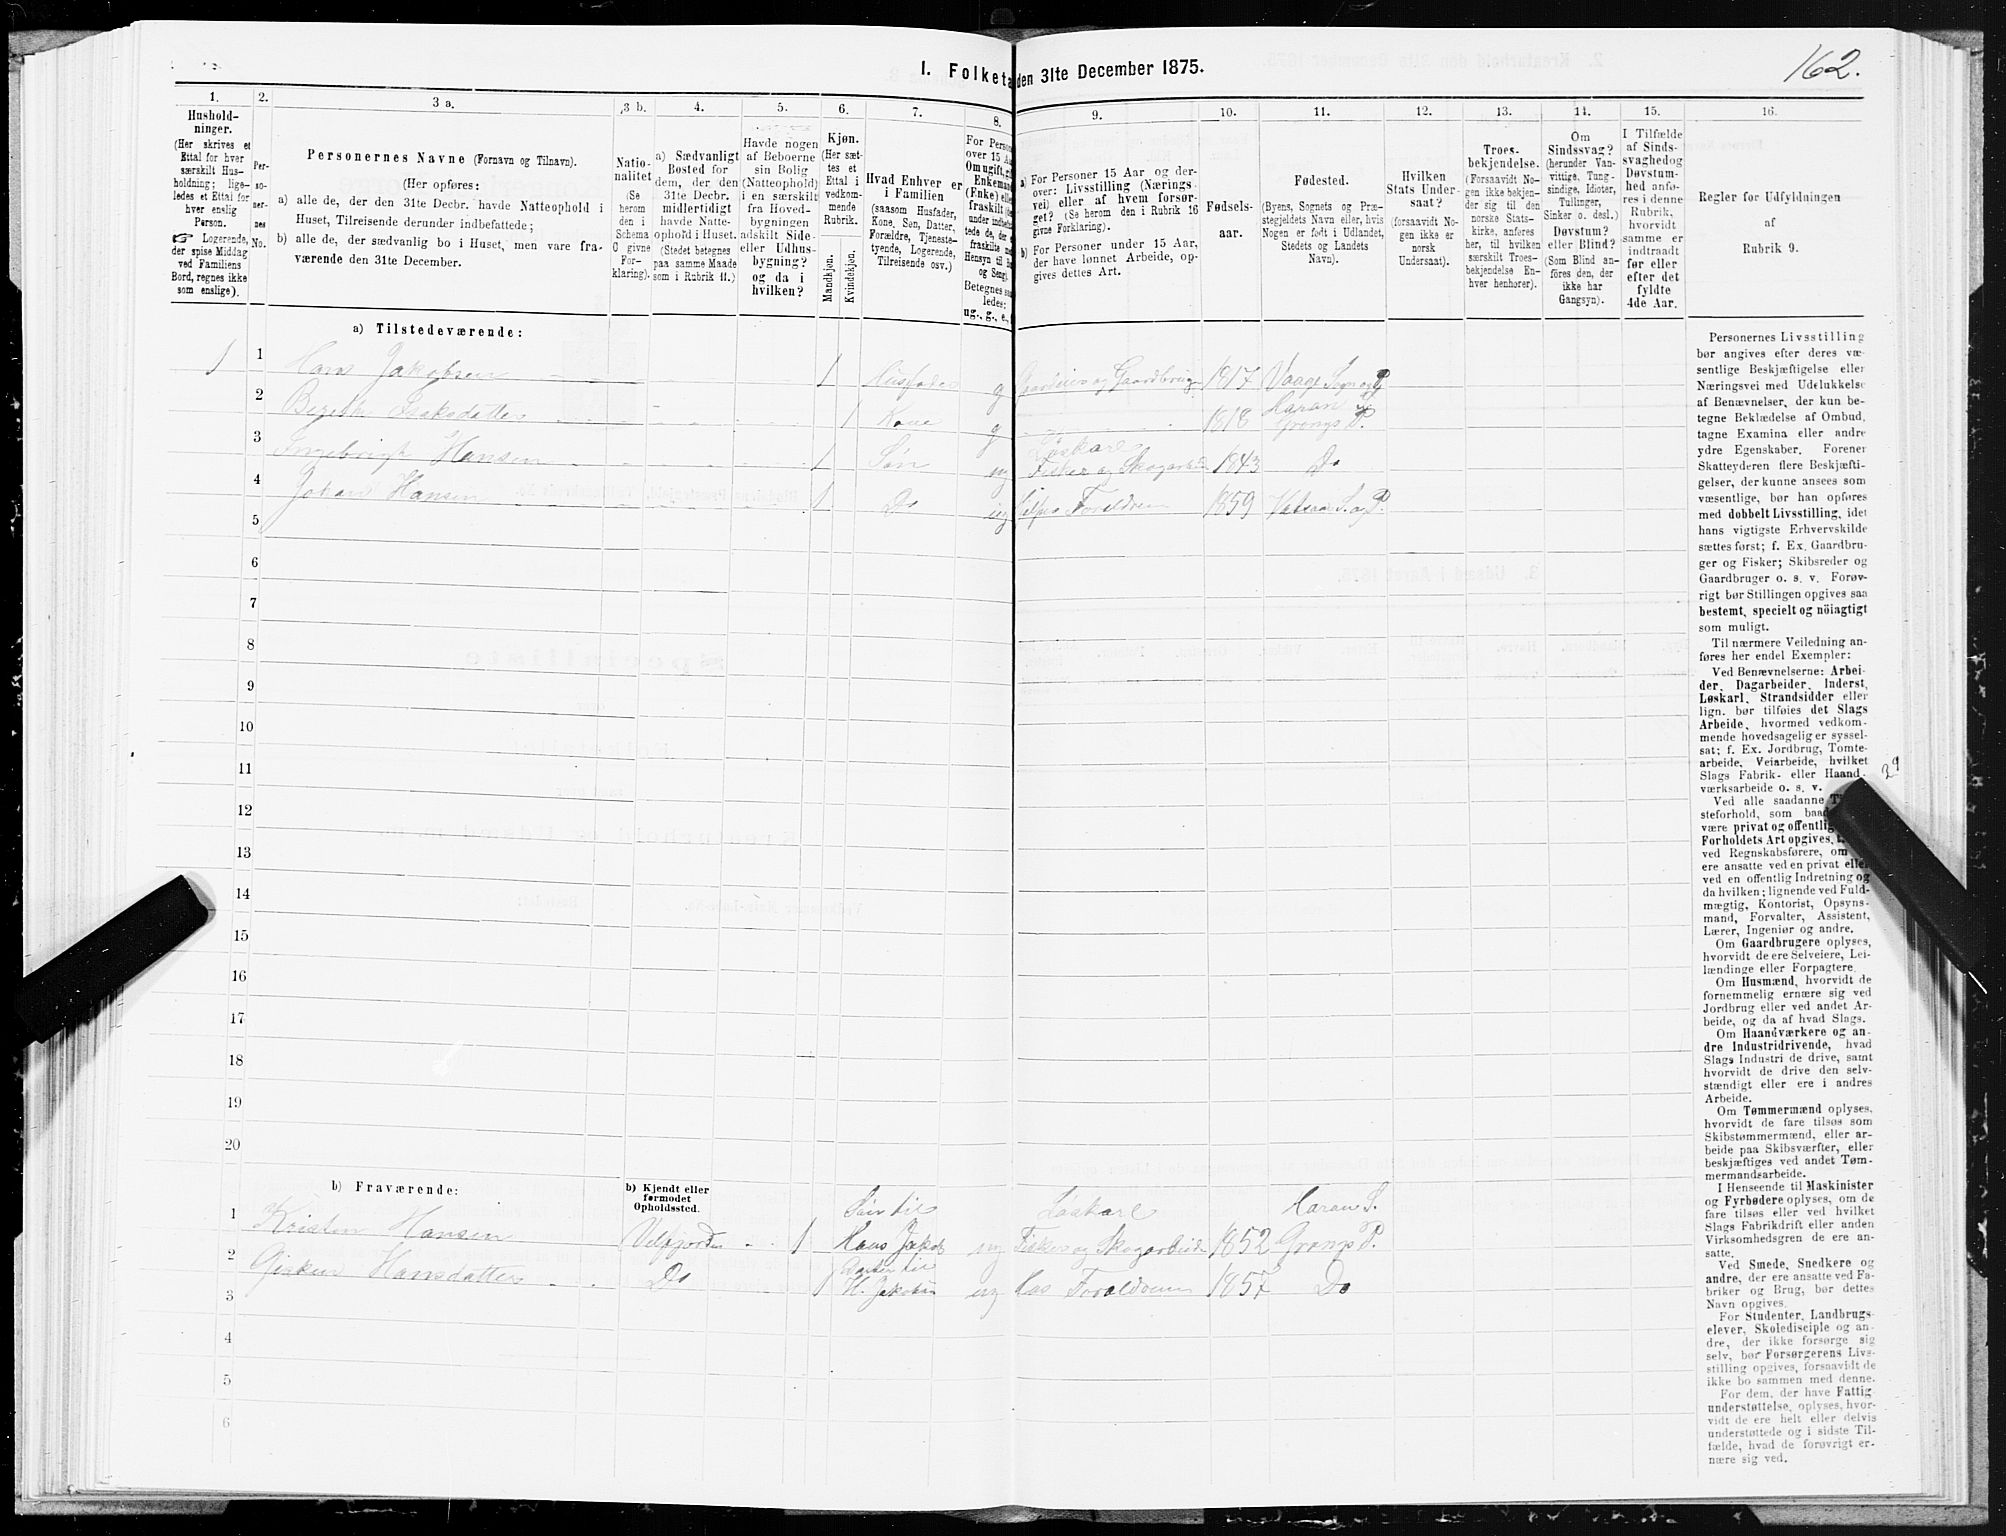 162.
I. Folketæ den 31te December 1875.
1. 2. 3 a. 3 b. 4. 5. 6. 7. 8. 9. 10. 11. 12. 13. 14. 15. 16.
Hushold-
ninger.
(Her skrives et
Ettal for hver
særskilt Hus-
holdning; lige-
ledes et Ettal for
hver enslig
Person.
☞ Logerende,
der spise Middag
ved Familiens
Bord, regnes ikke
som enslige).
Per-
so-
ner-
nes
No.
Personernes Navne (Fornavn og Tilnavn).
(Her opføres:
a) alle de, der den 31te Decbr. havde Natteophold i
Huset, Tilreisende derunder indbefattede;
b) alle de, der sædvanlig bo i Huset, men vare fra-
værende den 31te December.
Natio-
nalitet
(Se
herom
den i
Schema
C givne
For-
klaring).
a) Sædvanligt
Bosted for
dem, der den
31te Decbr.
midlertidigt
havde Natte-
ophold i Huset.
(Stedet betegnes
paa samme Maade
som i Rubrik 11.)
Havde nogen
af Beboerne
sin Bolig
(Natteophold)
i en særskilt
fra Hoved-
bygningen
adskilt Side-
eller Udhus-
bygning?
og da i
hvilken?
Kjøn.
(Her sæt-
tes et
Ettal i
vedkom-
mende
Rubrik.
Mandkjøn.
Kvindekjøn.
Hvad Enhver er
i Familien
(saasom Husfader,
Kone, Søn, Datter,
Forældre, Tjeneste-
tyende, Logerende,
Tilreisende osv.)
For Perso
over 15 Aa
Om ugift, gi
Enkeman
(Enke) elle
fraskilt
under indbef
tede de, der e
fraskilte m
Hensyn til B
og Seng).
Betegnes saa
ledes:
ug., g., e.,
a) For Personer 15 Aar og der-
over: Livsstilling (Nærings-
vei) eller af hvem forsør-
get? (Se herom den i Rubrik 16
givne Forklaring).
b) For Personer under 15 Aar,
der have lønnet Arbeide, op-
gives dettes Art.
Fødsels-
aar.
Fødested.
(Byens, Sognets og Præ-
stegjeldets Navn eller, hvis
Nogen er født i Udlandet,
Stedets og Landets
Navn).
Hvilken
Stats Under-
saat?
(forsaavidt No-
gen ikke er
norsk
Undersaat).
Troes-
bekjendelse.
(Forsaavidt No-
gen ikke bekjen-
der sig til den
norske Stats-
kirke, anføres
her, til hvilken
særskilt Troes-
bekjendelse En-
hver henhører).
Om
Sindssvag?
(herunder Van-
vittige, Tung-
sindige, Idioter,
Tullinger,
Sinker o. desl.)
Døvstum?
eller Blind?
(Som Blind an-
føres den, der
ikke har
Gangsyn).
I Tilfælde
af Sinds-
svaghed og
Døvstum-
hed anfø-
res i denne
Rubrik,
hvorvidt
samme er
indtraadt
før eller
efter det
fyldte
4de Aar.
Regler for Udfyldningen
af
Rubrik 9.
a) Tilstedeværende:
1 1 Hans Jakobsen 1 Husfader g Gaardeier og Gaardbrug 1817 Vaage Sogn og P
2 Isaksdatter 1 Kone g 1818 Haran Grongs P.
3 Ingebrigt Hansen 1 Søn ug Løskarl Fisker og Skogarbeid 1843 Do
4 Johan Hansen 1 Do ug Hilses Foreldrem 1859 S. og P.
5
6
7
8
9
10
11
12
13
14
15
16
17
18
19
20
b) Fraværende:
b) Kjendt eller
formodet
Opholdssted.
1 Kristen Hansen Velfjorden 1 Søn til Hans Jakob ug Løskarl Fisker og Skogarbeide 1852 Haran S. Grongs P.
2 Hansdatter Do 1 Datter til H. Jakobsen ug Hos Foreldrem 1857 Do
3
4
5
6
Personernes Livsstilling
bør angives efter deres væ-
sentlige Beskjæftigelse eller
Næringsvei med Udelukkelse
af Benævnelser, der kun be-
tegne Beklædelse af Ombud,
tagne Examina eller andre
ydre Egenskaber. Forener
Skatteyderen flere Beskjæfti-
gelser, der kunne ansees som
væsentlige, bør han opføres
med dobbelt Livsstilling, idet
hans vigtigste Erhvervskilde
sættes først; f. Ex. Gaardbru-
ger og Fisker; Skibsreder og
Gaardbruger o. s. v. Forøv-
rigt bør Stillingen opgives saa
bestemt, specielt og nöiagtigt
som muligt.
Til nærmere Veiledning an-
føres her endel Exempler:
Ved Benævnelserne: Arbei-
der, Dagarbeider, Inderst,
Løskarl, Strandsidder eller
lign. bør tilføies det Slags
Arbeide, hvormed vedkom-
mende hovedsagelig er syssel-
sat; f. Ex. Jordbrug, Tomte-
arbeide, Veiarbeide, hvilket
Slags Fabrik- eller Haand-
værksarbeide o. s. v.
Ved alle saadanne
steforhold, som baa
være privat og offentlig
Forholdets Art opgives,
ved Regnskabsførere, om
ere ansatte ved en privat eller
ved en offentlig Indretning og
da hvilken; lignende ved Fuld-
mægtig, Kontorist, Opsyns-
mand, Forvalter, Assistent,
Lærer, Ingeniør og andre.
Om Gaardbrugere oplyses,
hvorvidt de ere Selveiere, Lei-
lændinge eller Forpagtere.
Om Husmænd, hvorvidt de
fornemmelig ernære sig ved
Jordbrug eller ved andet Ar-
beide, og da af hvad Slags.
Om Haandværkere og an-
dre Industridrivende, hvad
Slags Industri de drive, samt
hvorvidt de drive den selv-
stændigt eller ere i andres
Arbeide.
Om Tømmermænd oplyses,
hvorvidt de fare tilsøs som
Skibstømmermænd, eller ar-
beide paa Skibsværfter, eller
beskjæftiges ved andet Tøm-
mermandsarbeide.
I Henseende til Maskinister
og Fyrbødere oplyses, om de
fare tilsøs eller ved hvilket
Slags Fabrikdrift eller anden
Virksomhedsgren de ere an-
satte.
Ved Smede, Snedkere og
andre, der ere ansatte ved Fa-
briker og Brug, bør dettes
Navn opgives.
For Studenter, Landbrugs-
elever, Skoledisciple og an-
dre, der ikke forsørge sig
selv, bør Forsørgerens Livs-
stilling opgives, forsaavidt de
ikke bo sammen med denne.
For dem, der have Fattig-
understøttelse, oplyses, hvor-
vidt de ere helt eller delvis
understøttede og i sidste Til-
fælde, hvad de forøvrigt er-
nære sig ved.